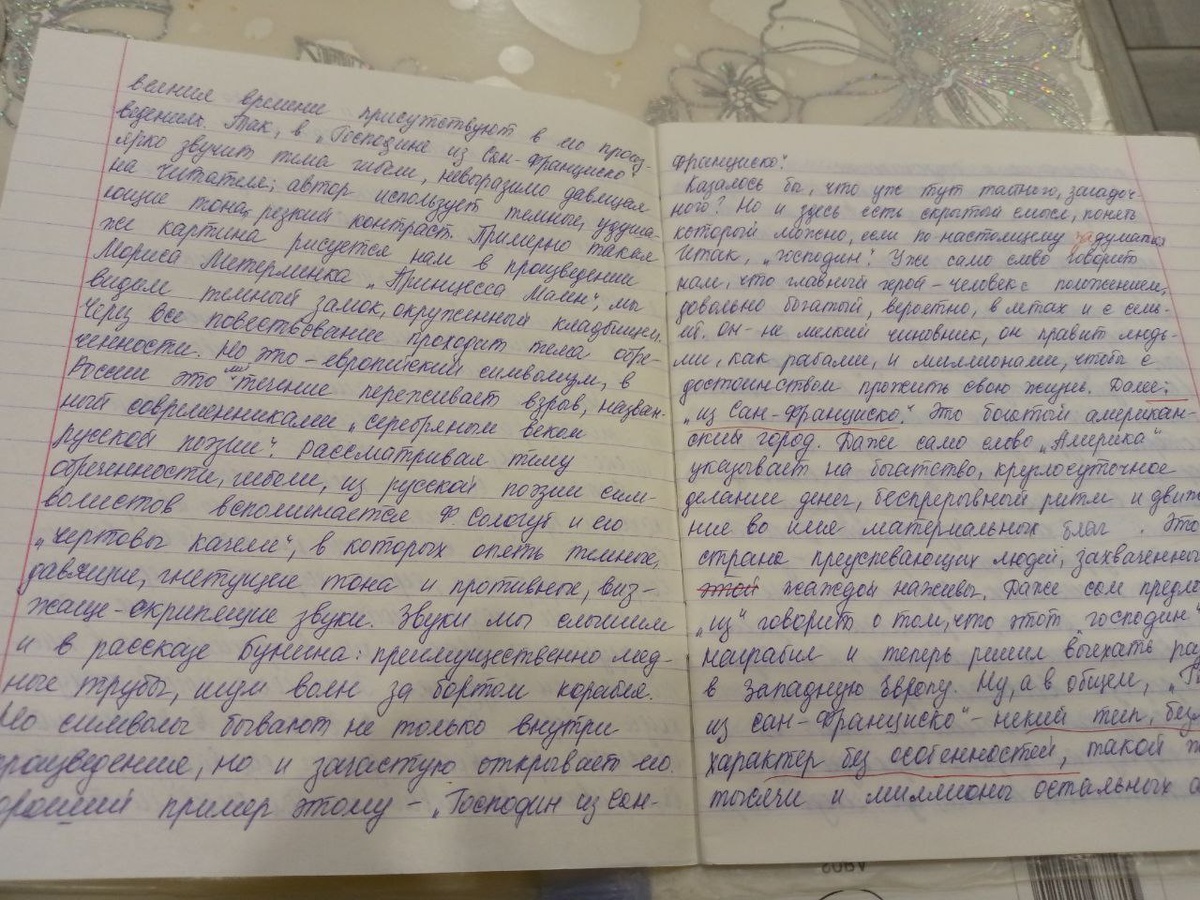 веяния времени присутствуют в его произ-
ведениях. Так, в „Господине из Сан-Франциско"
ярко звучит тема гибели, невыразимо давлящая
на читателя; автор использует темные, удуша-
ющие тона, резкий контраст. Примерно такая
же картина рисуется нам в произведении
Мориса Метерлинка „Принцесса Мален", мы
видим темный замок, окруженный кладбищем.
Через все повествование проходит тема обре-
ченности. Но это – европейский символизм, в
России это течение переживает взрыв, назван-
ный современниками „серебряным веком
русской поэзии". Рассматривая тему
обреченности, гибели, из русской поэзии сим-
волистов вспоминается Ф. Сологуб и его
„Чертовы качели", в которых опять темные,
давящие, гнетущие тона и противные, виз-
жаще-скрипящие звуки. Звуки мы слышим
и в рассказе Бунина: преимущественно мед-
ные трубы, шум волн за бортом корабля.
Но символы бывают не только внутри
произведения, но и зачастую открывает его.
ороший пример этому – „Господин из Сан-
Франциско".
Казалось бы, что уж тут тайного, загадоч-
ного? Но и здесь есть скрытый смысл, понять
который можно, если по-настоящему задуматься
Итак, „господин". Уже само слово говорит
нам, что главный герой – человек с положением,
довольно богатый, вероятно, в летах и с семь-
ей. Он – не мелкий чиновник, он правит людь-
ми, как рабами, и миллионами, чтобы с
достоинством прожить свою жизнь. Далее:
„из Сан-Франциско". Это богатый американ-
ский город. Даже само слово „Америка"
указывает на богатство, круглосуточное
делание денег, беспрерывный ритм и движе
ние во имя материальных благ. Это
страна преуспевающих людей, захваченных
этой жаждой наживы. Даже сам предлог
„из" говорит о том, что этот господин
награбил и теперь решил выехать раз
в Западную Европу. Ну, а в общем, „Го
из Сан-Франциско" – некий тип, без
характер без особенностей, такой ж
тысячи и миллионы остальных а